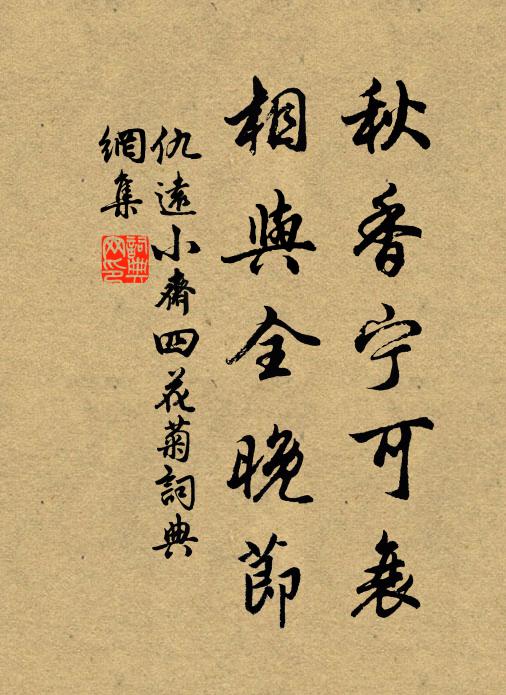 秋香宁可衰
相與全晚節
仇遠小齋四花菊詞典
網集
詞典網印